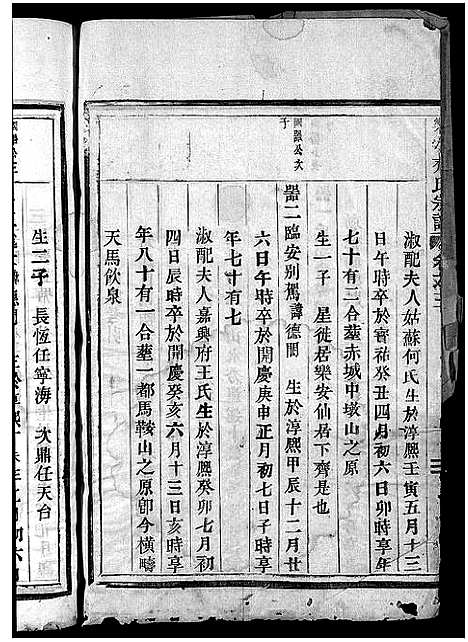 淑配夫人姑蘇何氏生於淳熈壬寅五月十三
日午時卒於寳祐癸丑四月初六日卯時享年
七十有二合塟赤城中墩山之原
生一子　星徙居樂安仙居下齊是也
國器公次子
噐二臨安别駕諱德開　生於淳熈甲辰十二月廿
六日午時卒於開慶庚申正月初七日子時享
年七十有七
淑配夫人嘉興府王氏生於淳熈癸卯七月初
四日辰時卒於開慶癸亥六月十三日亥時享
年八十有一合塟一都馬鞍山之原卽今横疇
天馬飲泉
生二子　長恆任寜海　次鼎任天台